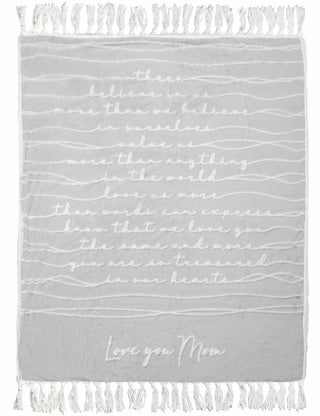 there
believe in us
more than we believe
in ourselves
value us
more than anything
in the world
love us more
than words can express
know that we love you
the same and more
you are so treasured
in our hearts
Love you Mom